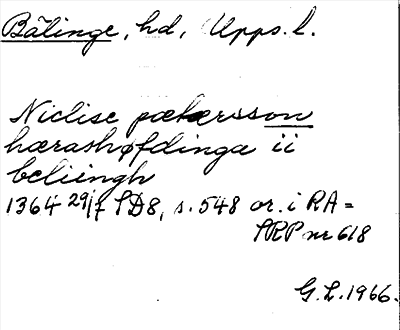 Bälinge, hd, Upps. l.
Niclise pætærsson
hærashøfdinga ii
beliingh
1364 29/7 SD8, s. 548 or. i RA =
SRP nr 618
G. L. 1966.